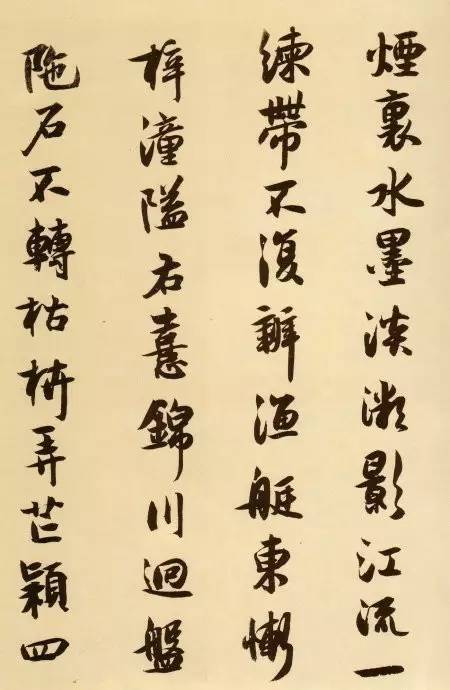 煙裏水墨淡影江流一
練帶不復辨漁艇東慚
梓潼隘右憙錦川迴盤
陁石不轉枯枿弄芒穎四